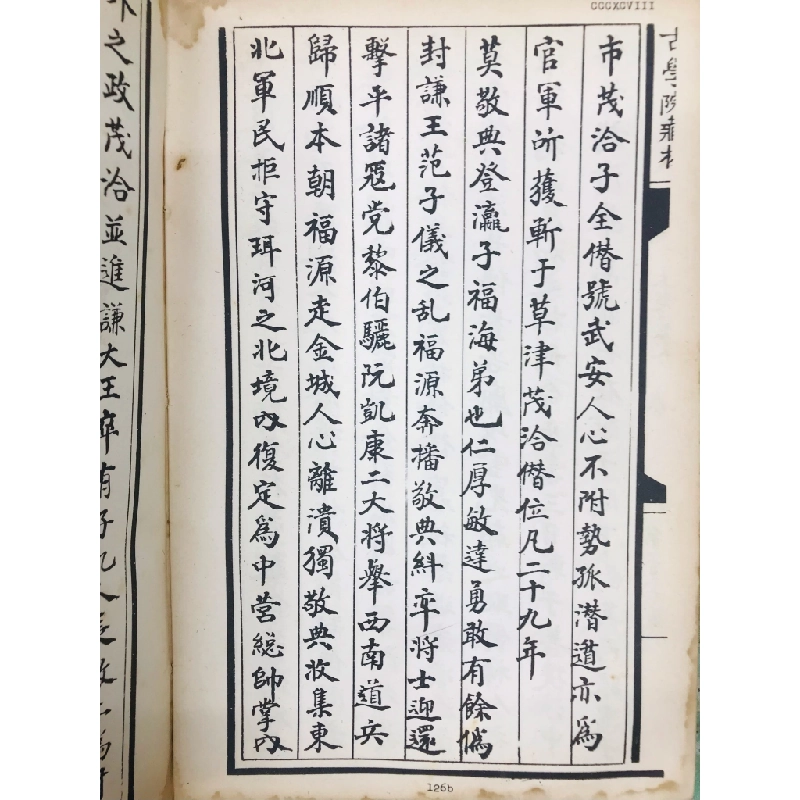 CCCXCVIII
市茂洽子全僭號武安人心不附勢孤潜道亦為
官軍所獲斬于草津茂洽僭位凡二十九年
莫敬典登瀛子福海弟也仁厚敏達勇敢有餘偽
封謙王范子儀之乱福源奔播敬典糾率将士迎還
擊平諸冦党黎伯驪阮凱康二大将舉西南道兵
歸順本朝福源走金城人心離潰獨敬典收集東
北軍民拒守珥河之北境內復定為中营総帥掌内
之政茂洽並進謙大王卒有子九人
125b